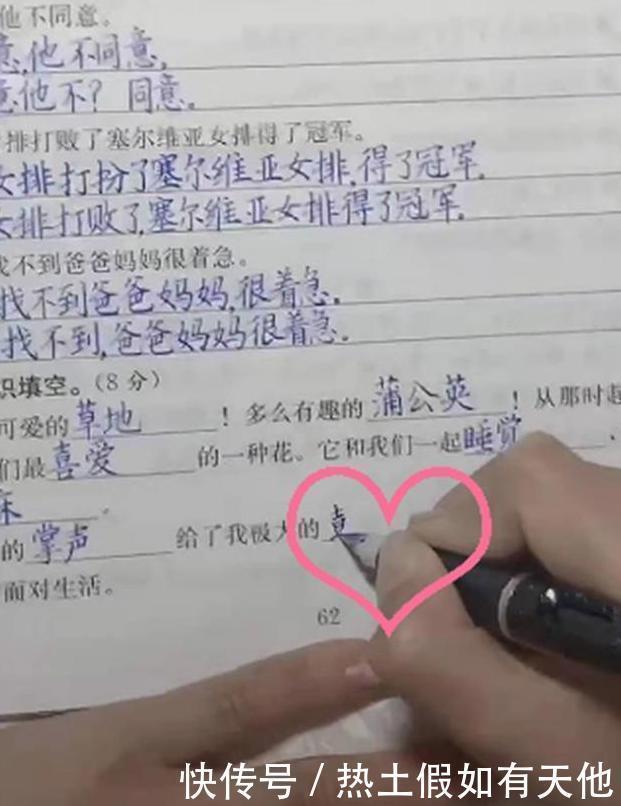 他不同意。
意,他不同意,
意他不? 同意。
排打败了塞尔维亚女排得了冠军。
女排打扮了塞尔维亚女排,得了冠军.
女排打败了,塞尔维亚女排得了冠军.
找不到爸爸妈妈很着急。
找不到爸爸妈妈,很着急.
找不到,爸爸妈妈很着急.
识填空。(8分)
可爱的草地!多么有趣的蒲公英!从那时起
们最喜爱的一种花。它和我们一起睡觉、
床。
的掌声给了我极大的
面对生活。
62
快传号 / 热土假如有天他